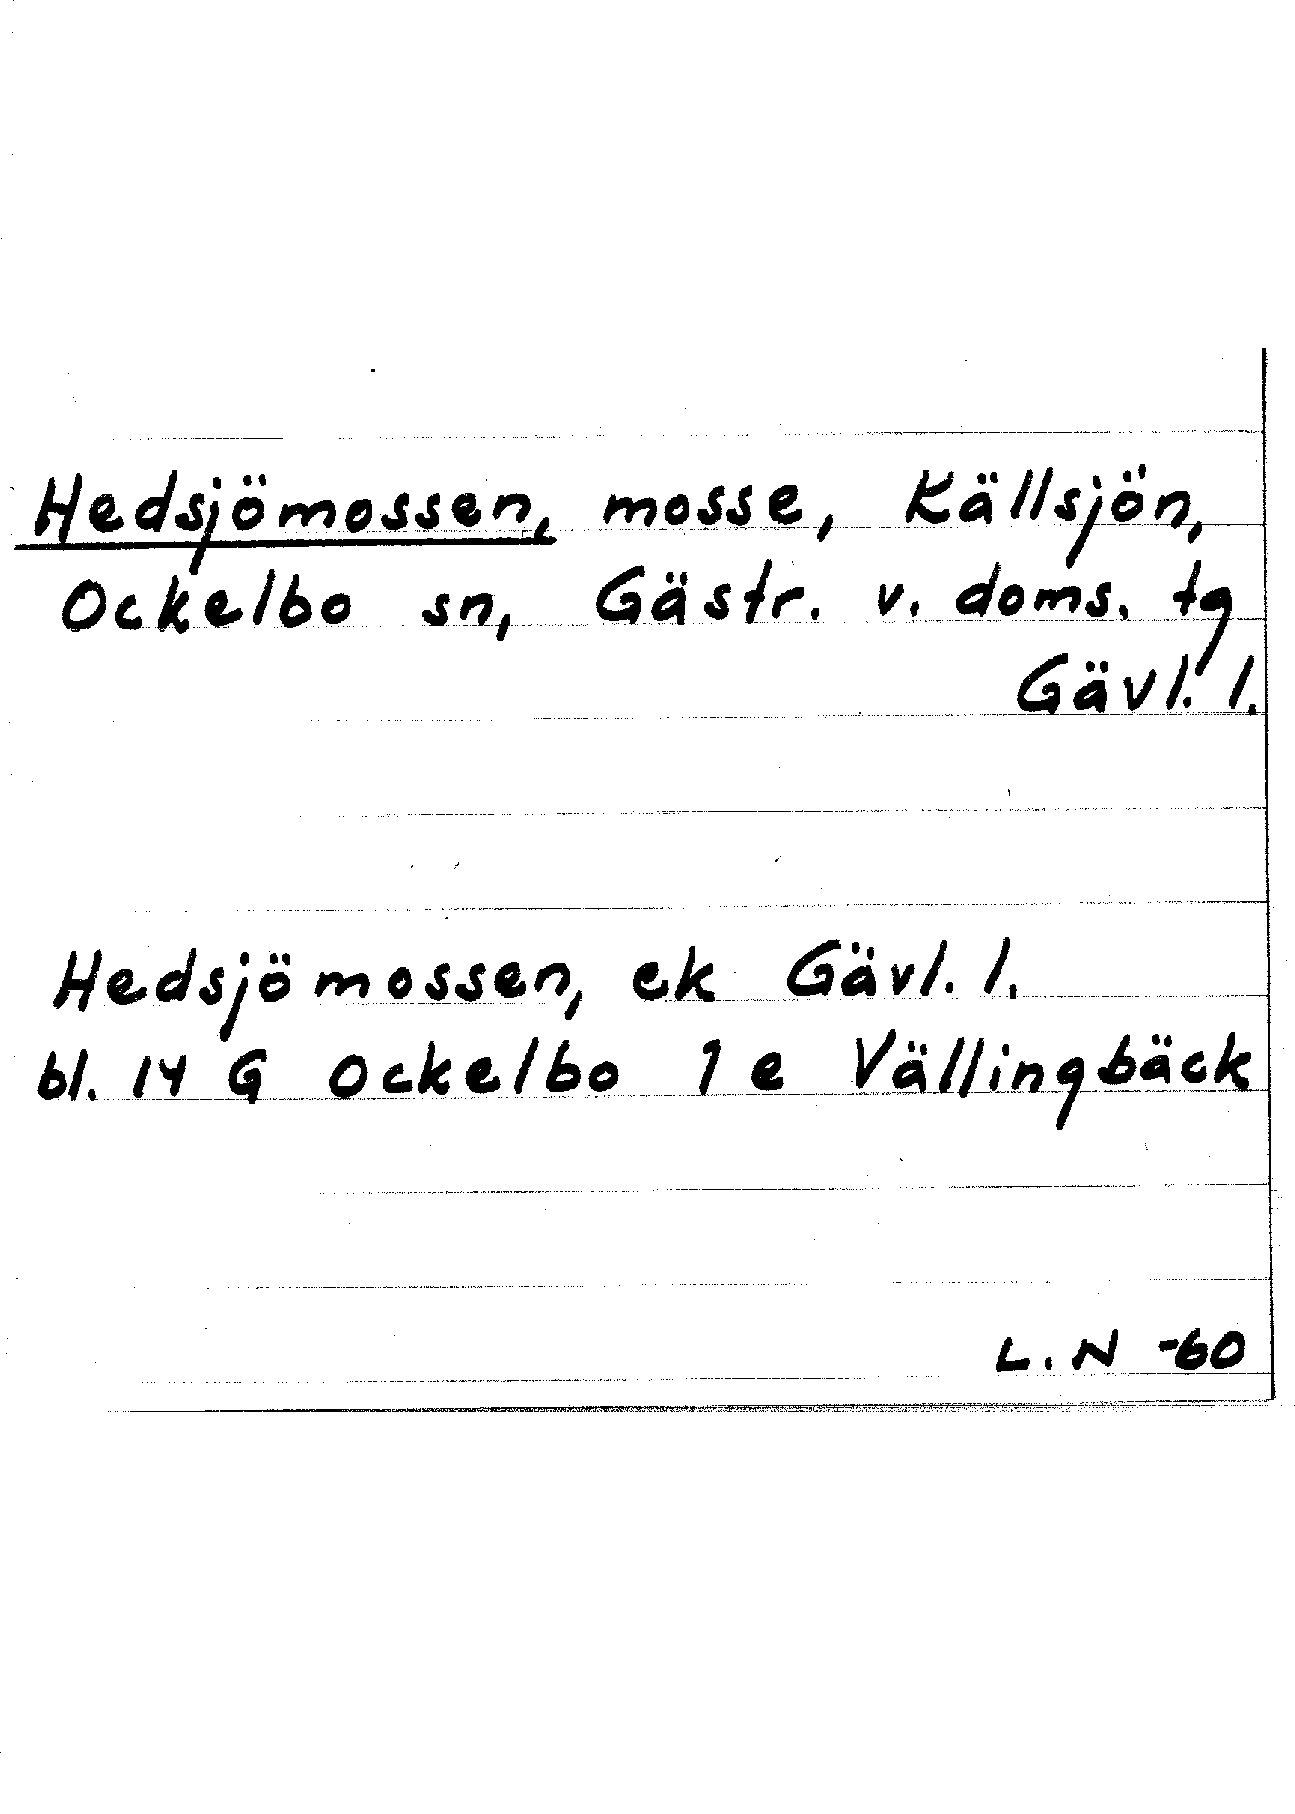 Hedsjömossen, mosse, Källsjön,
Ockelbo sn, Gästr. v. doms. tg
Gävl. l.
Hedsjömossen, ek Gävl. l.
bl. 14 G Ockelbo 1 e Vällingbäck
L. N -60